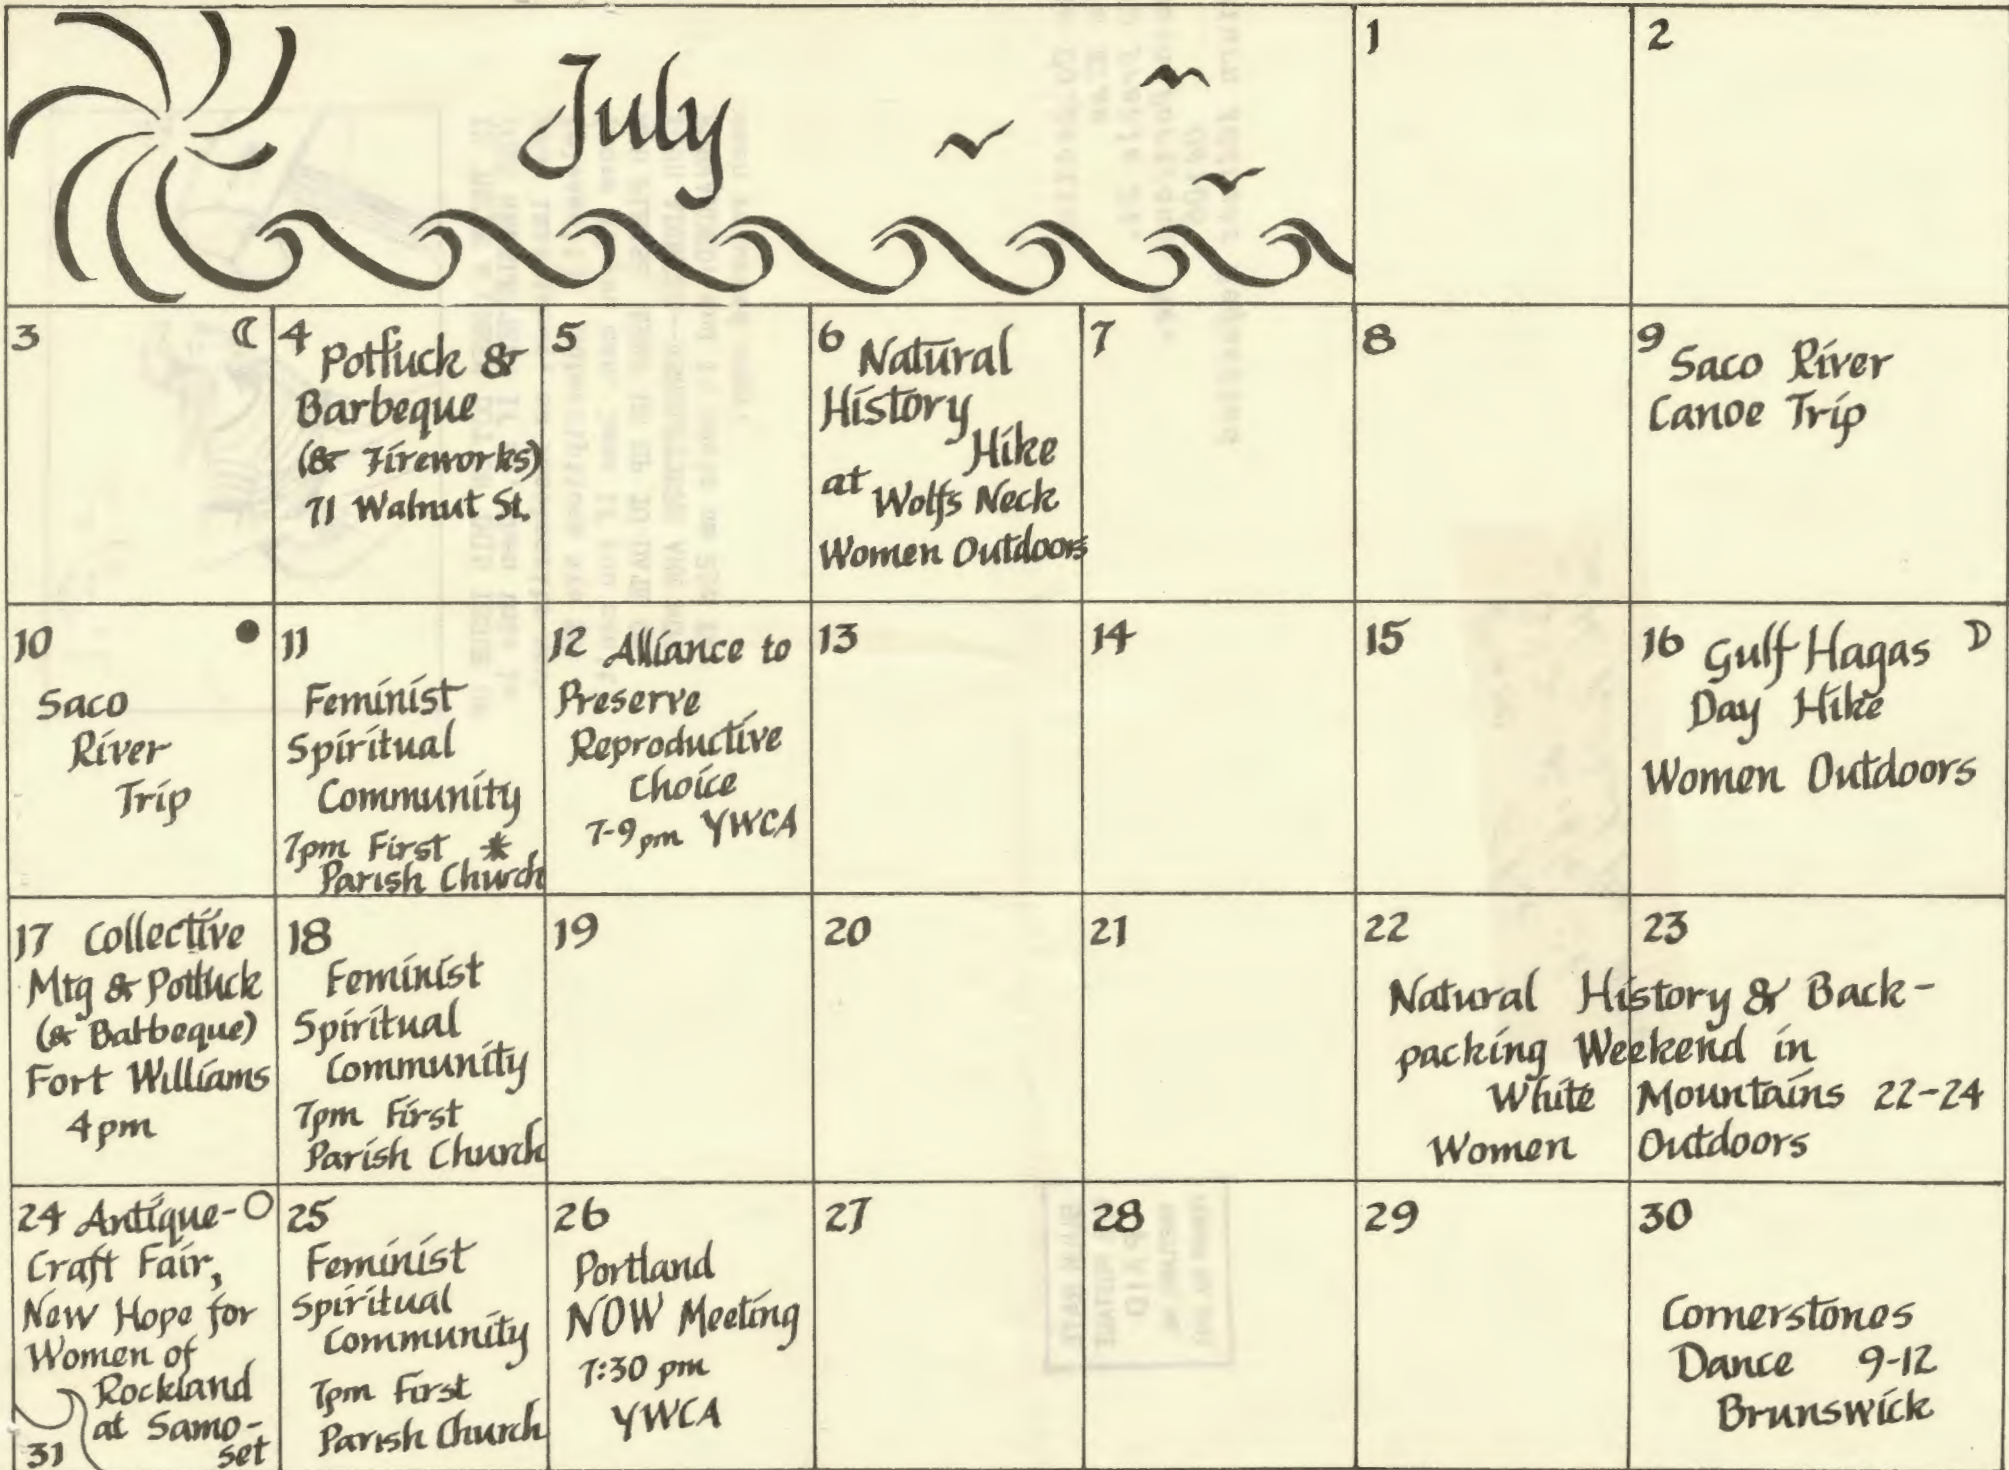 July
1
2
3
4 Potluck &
Barbeque
(& Fireworks)
71 Walnut St.
5
6 Natural
History
Hike
at Wolfs Neck
Women Outdoors
7
8
9 Saco River
Canoe Trip
10
Saco
River
Trip
11
Feminist
Spiritual
Community
7pm First *
Parish Church
12 Alliance to
Preserve
Reproductive
Choice
7-9 pm YWCA
13
14
15
16 Gulf Hagas
Day Hike
Women Outdoors
17 Collective
Mtg & Potluck
(& Barbeque)
Fort Williams
4pm
18
Feminist
Spiritual
Community
7pm First
Parish Church
19
20
21
22
23
Natural History & Back-
packing Weekend in
White Mountains 22-24
Women Outdoors
24 Antique-
Craft Fair,
New Hope for
Women of
Rockland
at Samo-
set
31
25
Feminist
Spiritual
Community
7pm First
Parish Church
26
Portland
NOW Meeting
7:30 pm
YWCA
27
28
29
30
Cornerstones
Dance 9-12
Brunswick